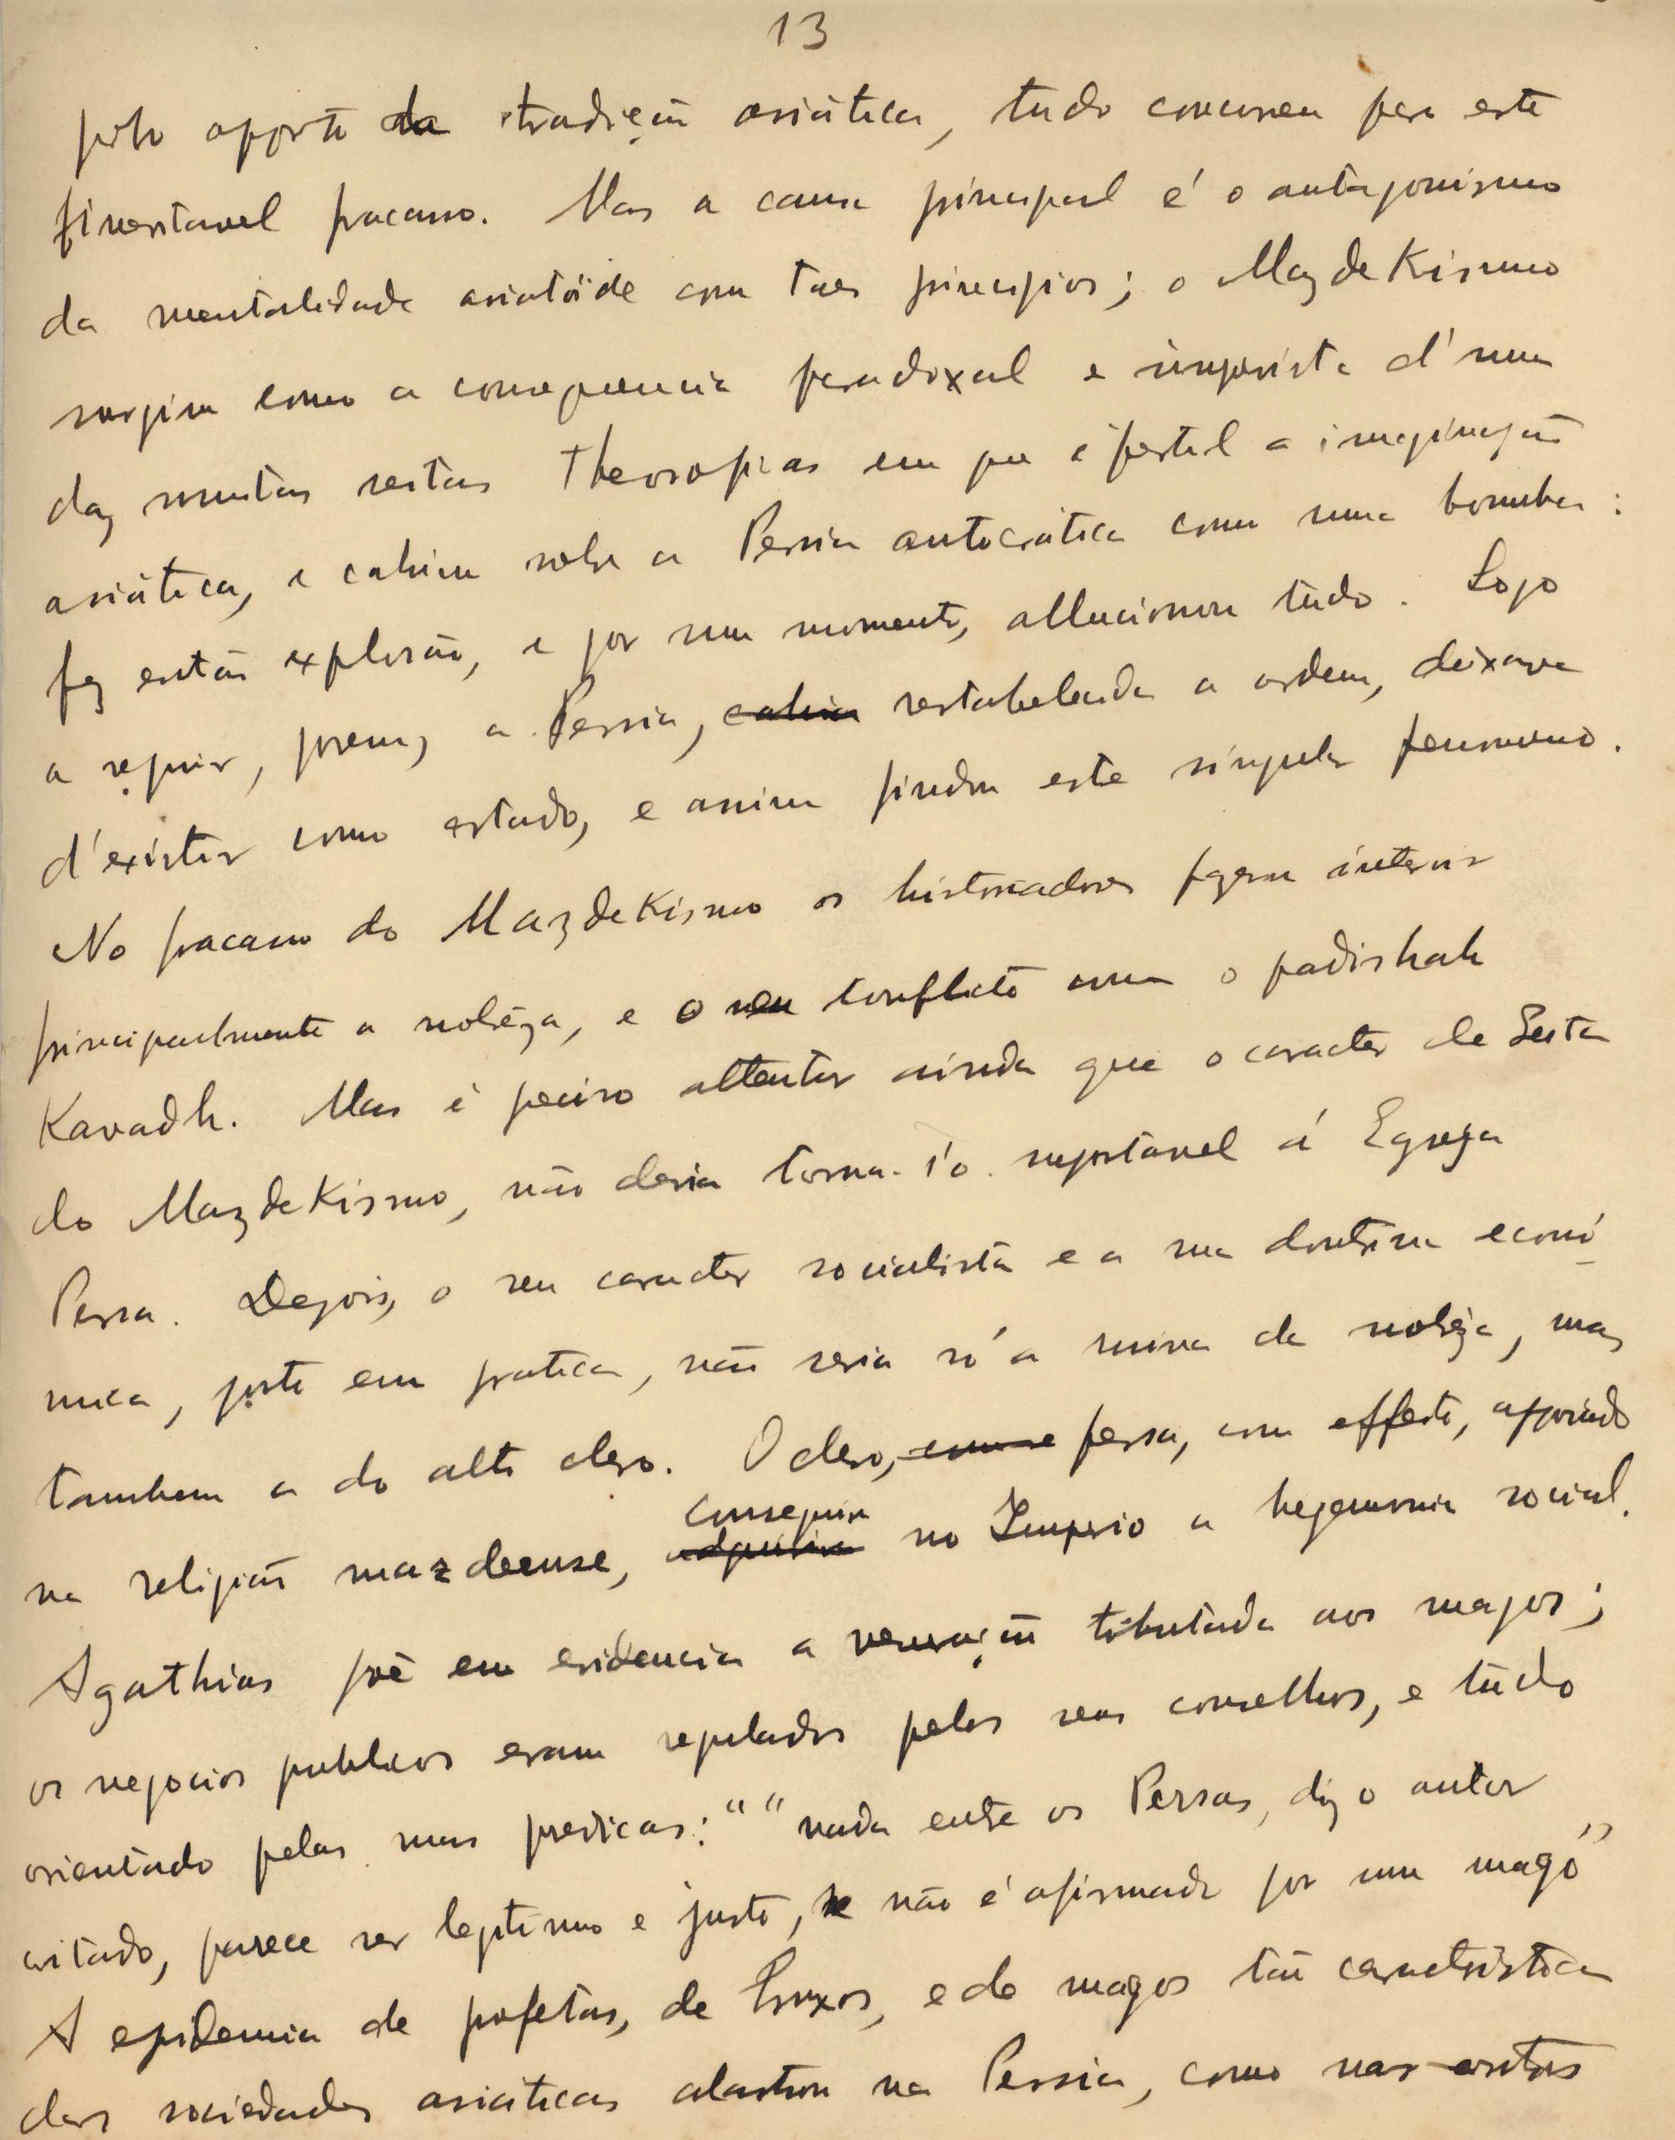 13
feito opposto da tradição asiática, tudo concorreu para este
inevitavel fracasso. Mas a causa principal é o antagonismo
da mentalidade asiatóide com taes principios; o Mazdekismo
surgira como a consequencia paradoxal e imprevista d'uma
das muitas seitas theosophicas em que é fertil a imaginação
asiática, e cahira sobre a Persia autocrática como uma bomba:
fez então explosão, e por um momento, allucionou tudo. Logo
a seguir, porem, a Persia, cahia restabelecida a ordem, deixava
d'existir como estado, e assim findou este singular fenomeno.
No fracasso do Mazdekismo os historiadores fazem intervir
principalmente a nobrêza, e o seu conflicto com o padishah
Kavadh. Mas é preciso attentar ainda que o caracter de Seita
do Mazdekismo, não devia torna-l'o suportavel á Egreja
Persa. Depois, o seu caracter socialista e a sua doutrina econó-
mica, posta em pratica, não seria só a ruina da nobrêza, mas
tambem a do alto clero. O clero, persa, com effeito, appoiado
na religião mazdeense, conseguira no Imperio a hegemonia social.
Agathias põe em evidencia a veneração tributada aos magos;
os negocios publicos eram regulados pelos seus conselhos, e tudo
orientado pelas suas predicas: " "nada entre os Persas, diz o autor
citado, parece ser legitimo e justo, se não é afirmado por um mago"
A epidemia de profetas, de bruxos, e de magos tão caracteristica
das sociedades asiáticas alastrou na Persia, como nas outras